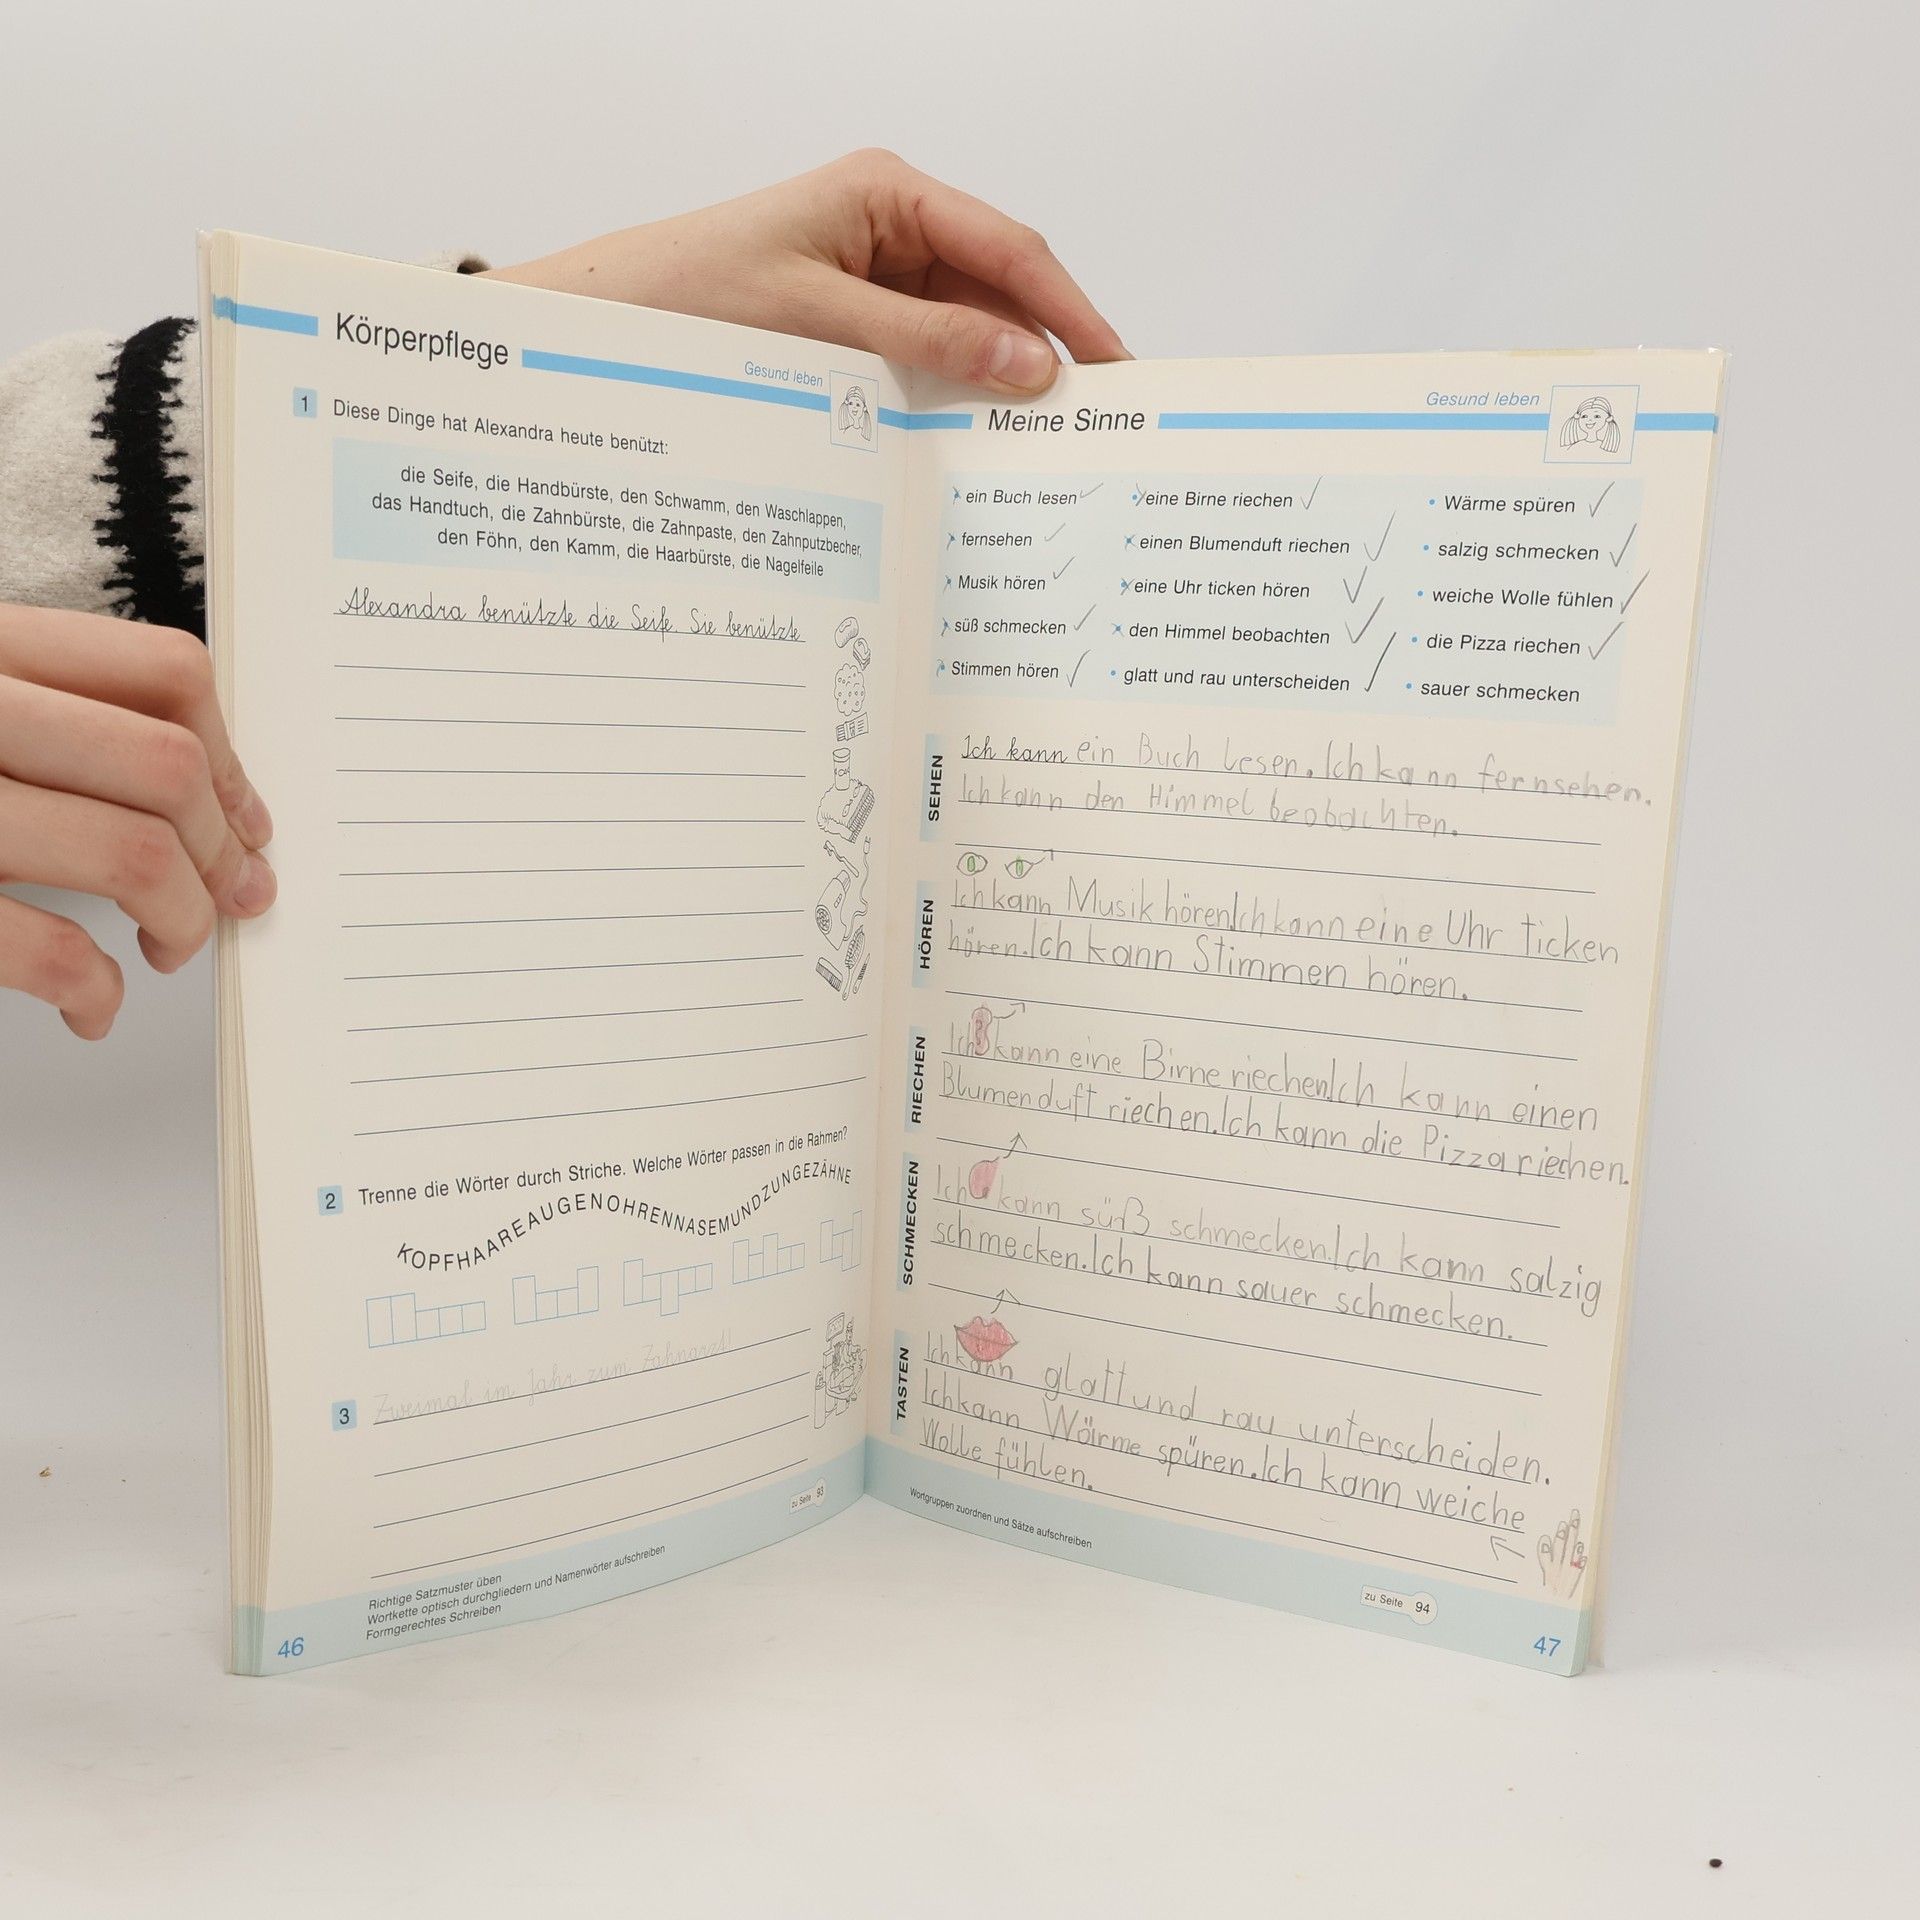 Körperpflege
Gesund leben
1 Diese Dinge hat Alexandra heute benützt:
die Seife, die Handbürste, den Schwamm, den Waschlappen,
das Handtuch, die Zahnbürste, die Zahnpaste, den Zahnputzbecher,
den Föhn, den Kamm, die Haarbürste, die Nagelfeile
Alexandra benützte die Seife. Sie benützte
2 Trenne die Wörter durch Striche. Welche Wörter passen in die Rahmen?
KOPFHAAREAUGENOHRENNASEMUNDZUNGEZÄHNE
3 Zweimal im Jahr zum Zahnarzt!
zu Seite 93
Richtige Satzmuster üben
Wortkette optisch durchgliedern und Namenwörter aufschreiben
Formgerechtes Schreiben
46
Meine Sinne
Gesund leben
• ein Buch lesen • eine Birne riechen • Wärme spüren
• fernsehen • einen Blumenduft riechen • salzig schmecken
• Musik hören • eine Uhr ticken hören • weiche Wolle fühlen
• süß schmecken • den Himmel beobachten • die Pizza riechen
• Stimmen hören • glatt und rau unterscheiden • sauer schmecken
SEHEN
Ich kann ein Buch lesen. Ich kann fernsehen.
Ich kann den Himmel beobachten.
HÖREN
Ich kann Musik hören.Ich kann eine Uhr ticken
hören. Ich kann Stimmen hören.
RIECHEN
Ich kann eine Birne riechen.Ich kann einen
Blumenduft riechen. Ich kann die Pizza riechen.
SCHMECKEN
Ich kann süß schmecken. Ich kann salzig
schmecken. Ich kann sauer schmecken.
TASTEN
Ich kann glatt und rau unterscheiden.
Ich kann Wärme spüren. Ich kann weiche
Wolle fühlen.
Wortgruppen zuordnen und Sätze aufschreiben
zu Seite 94
47